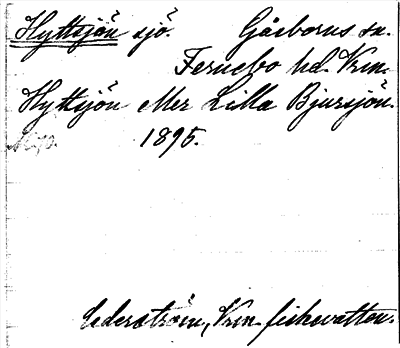 Hyttsjön sjö. Gåsborns sn.
Fernebo hd. Vrm.
Hyttsjön eller Lilla Bjursjön.
1895.
Cederström, Vrm fiskevatten.